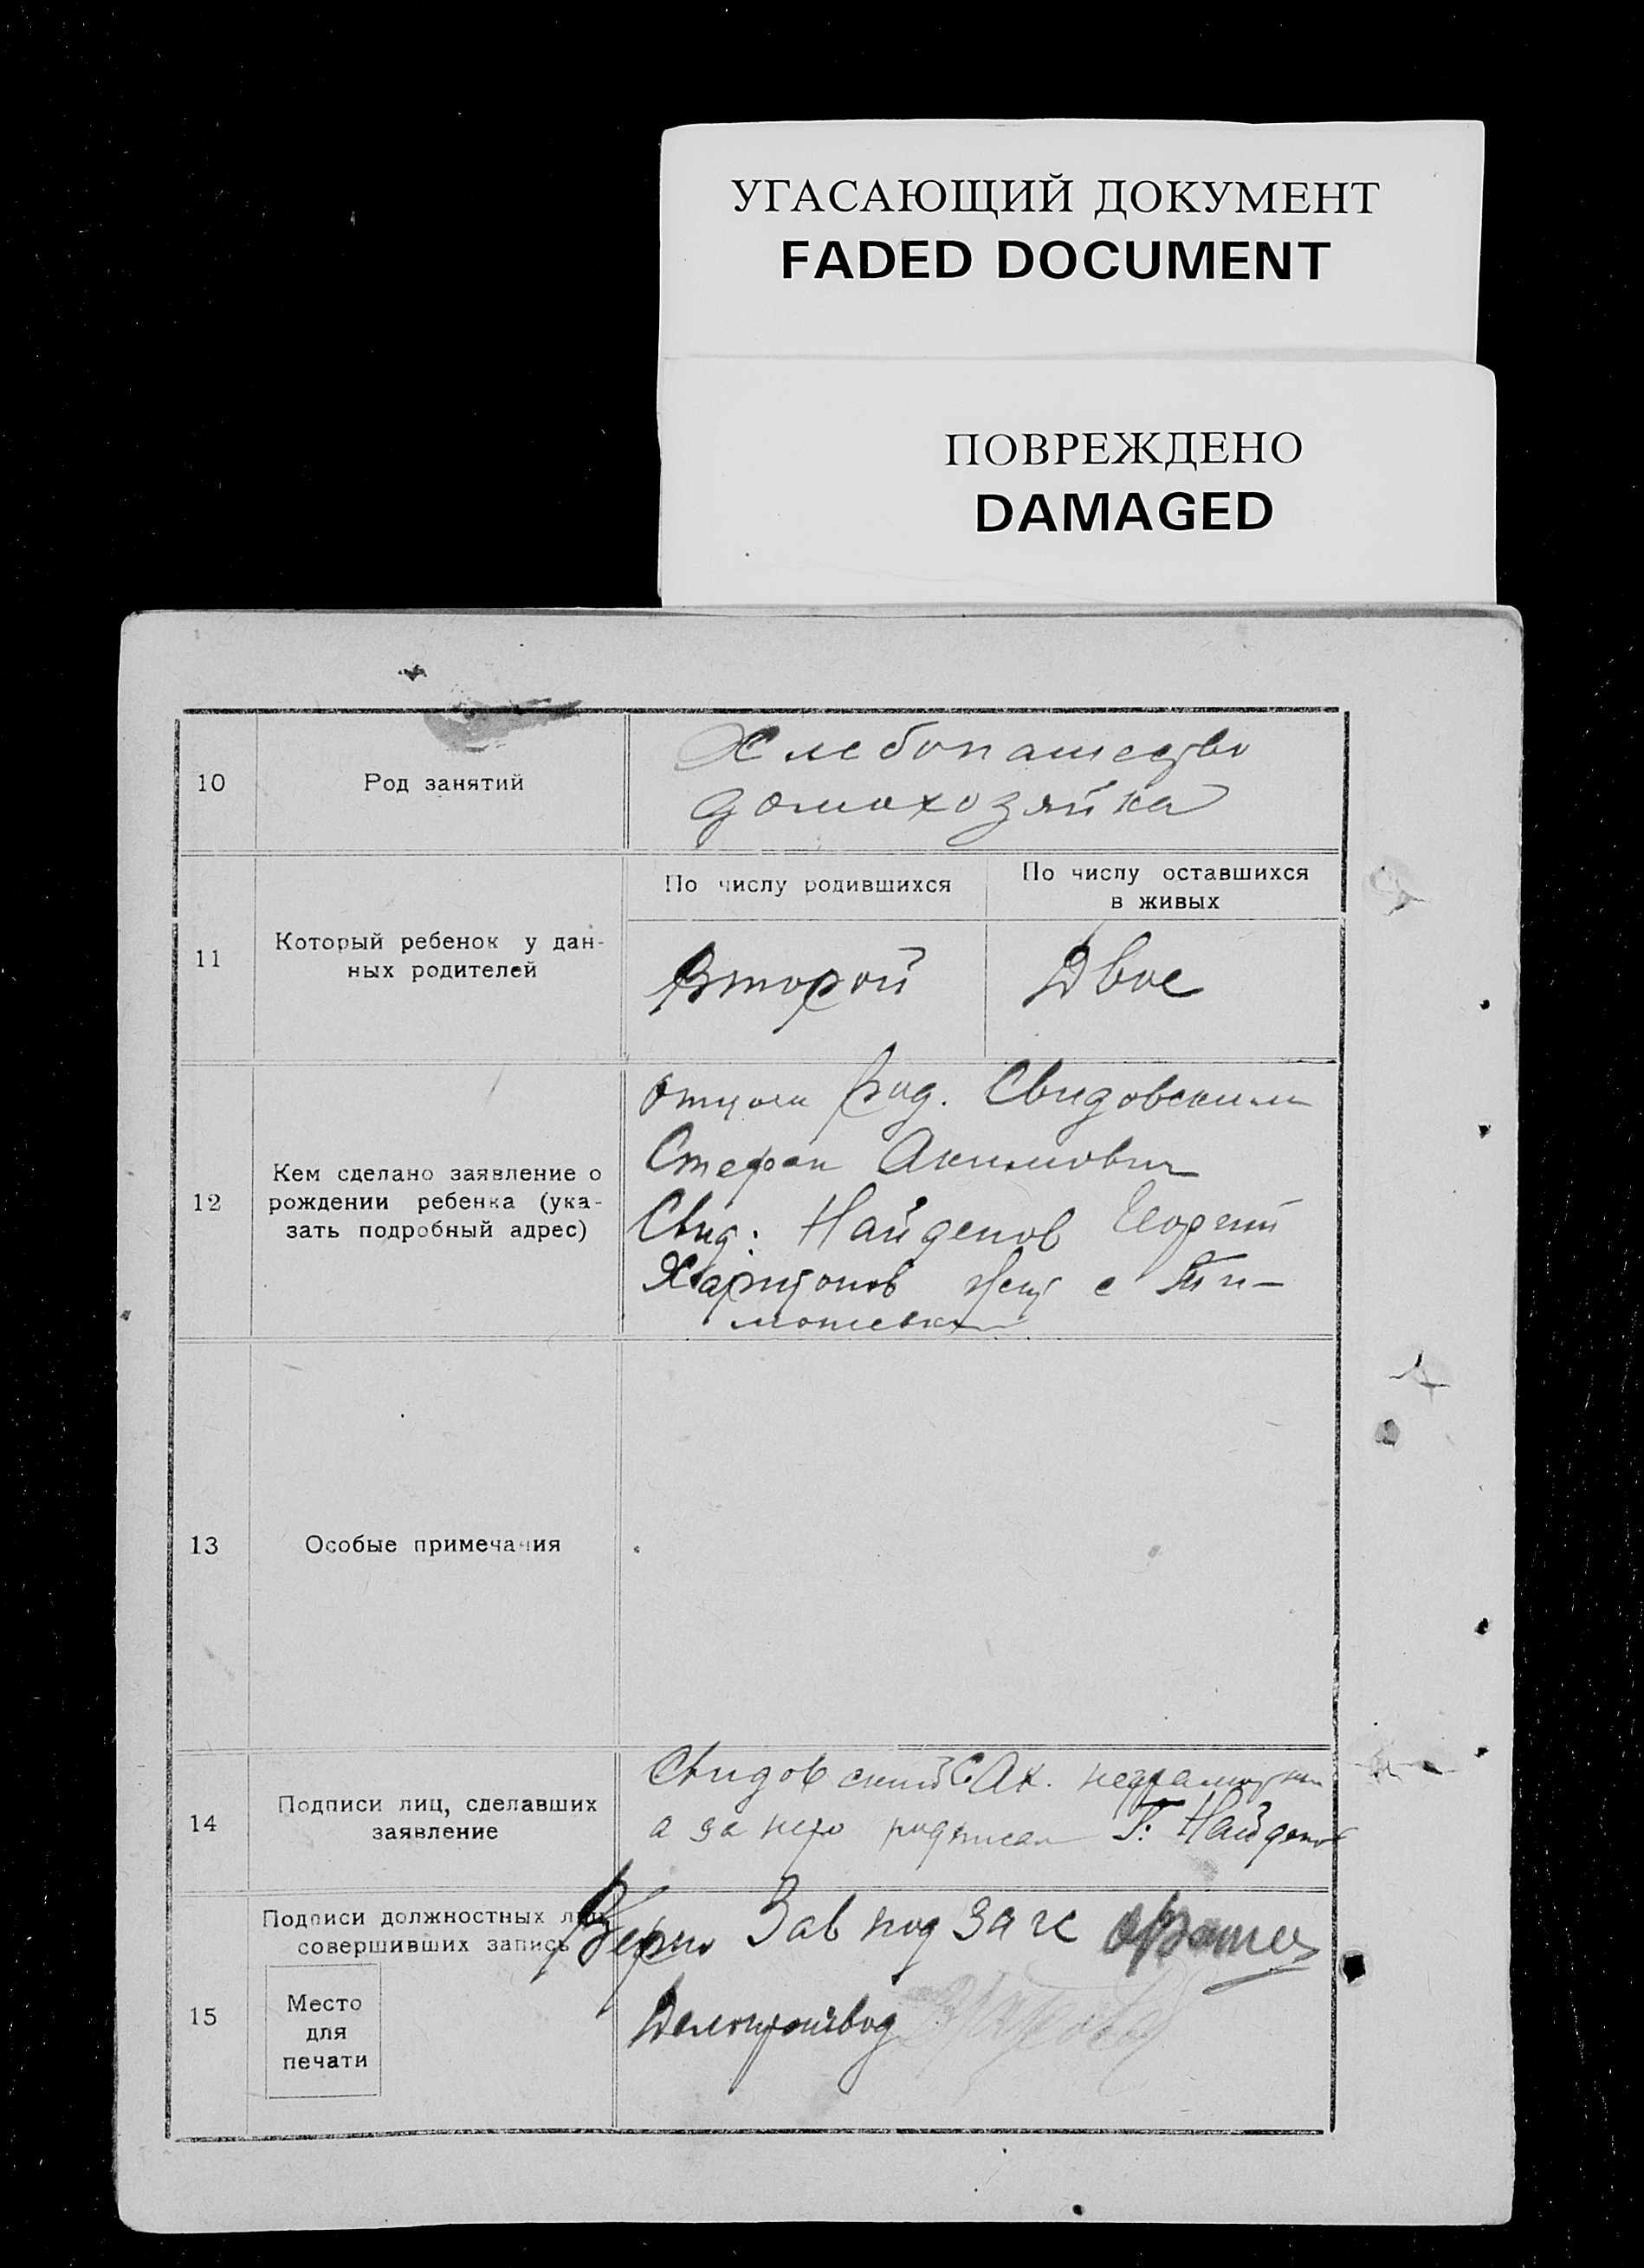 УГАСАЮЩИЙ ДОКУМЕНТ
FADED DOCUMENT
ПОВРЕЖДЕНО
DAMAGED
10
Род занятий
Хлебопашество
домохозяйка
11
Который ребенок у дан-
ных родителей
По числу родившихся
По числу оставшихся
в живых
Второй
Двое
12
Кем сделано заявление о
рождении ребенка (ука-
зать подробный адрес)
Отцом Свидовским
Стефан Акимович
Свид: Найденов Георгий
Харитонов с Ти-
мошевка
13
Особые примечания
14
Подписи лиц, сделавших
заявление
Свидовский С. Ак. неграмотн
а за него подписал Г. Найденов
15
Подписи должностных лиц,
совершивших запись
Место
для
печати
Верно Зав под загс
Делопроизвод